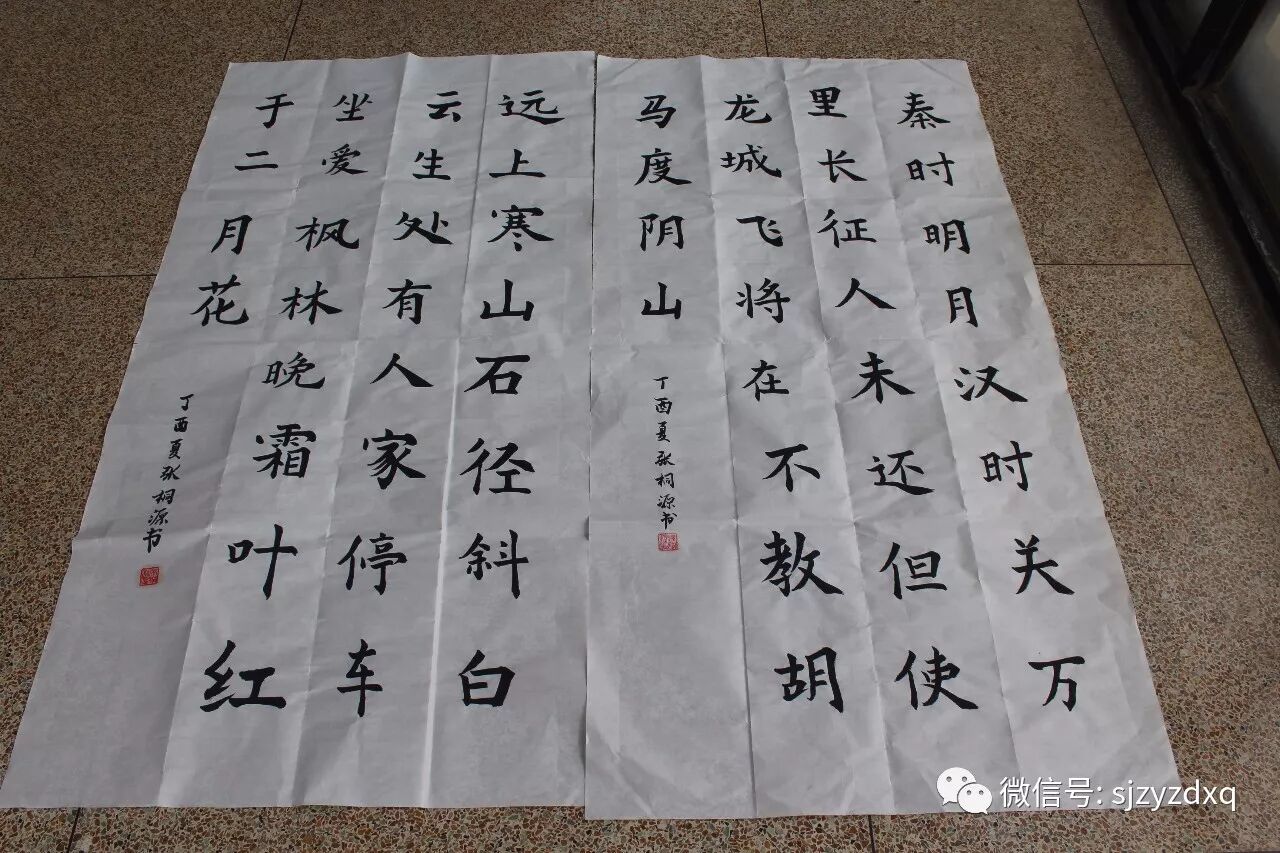 秦时明月汉时关万
里长征人未还但使
龙城飞将在不教胡
马度阴山
丁酉夏张桐源书
远上寒山石径斜白
云生处有人家停车
坐爱枫林晚霜叶红
于二月花
丁酉夏张桐源书
微信号: sjzyzdxq